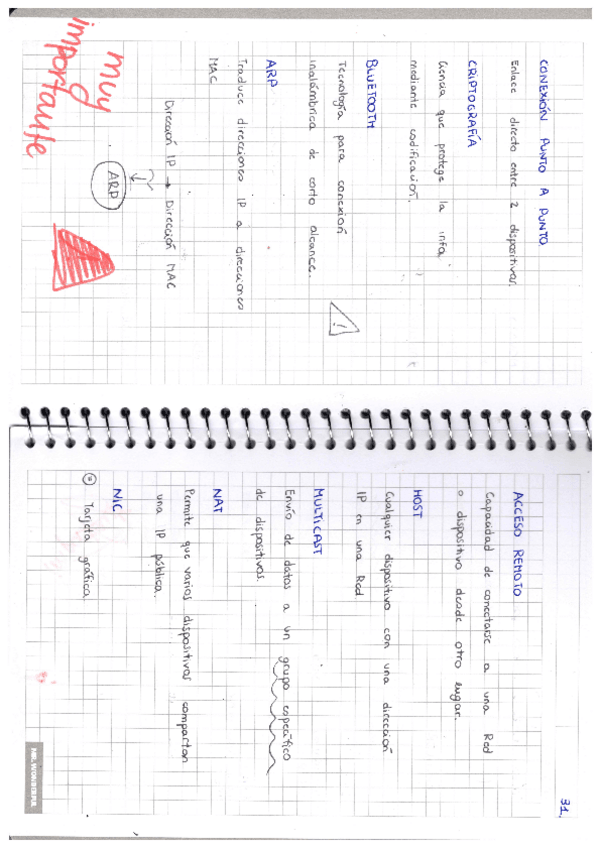 CONEXIÓN PUNTO A PUNTO
Enlace directo entre 2 dispositivos.
CRIPTOGRAFÍA
Ciencia que protege la info.
mediante codificación.
BLUETOOTH
Tecnología para conexión
inalámbrica de corto alcance.
!
ARP
Traduce direcciones IP a direcciones
MAC
Dirección IP → Dirección MAC
ARP
muy
importante
31.
ACCESO REMOTO
Capacidad de conectarse a una Red
o dispositivo desde otro lugar.
HOST
Cualquier dispositivo con una dirección
IP en una Red.
MULTICAST
Envío de datos a un grupo específico
de dispositivos.
NAT
Permite que varios dispositivos compartan
una IP pública.
NIC
Tarjeta gráfica.
MR. WONDERFUL